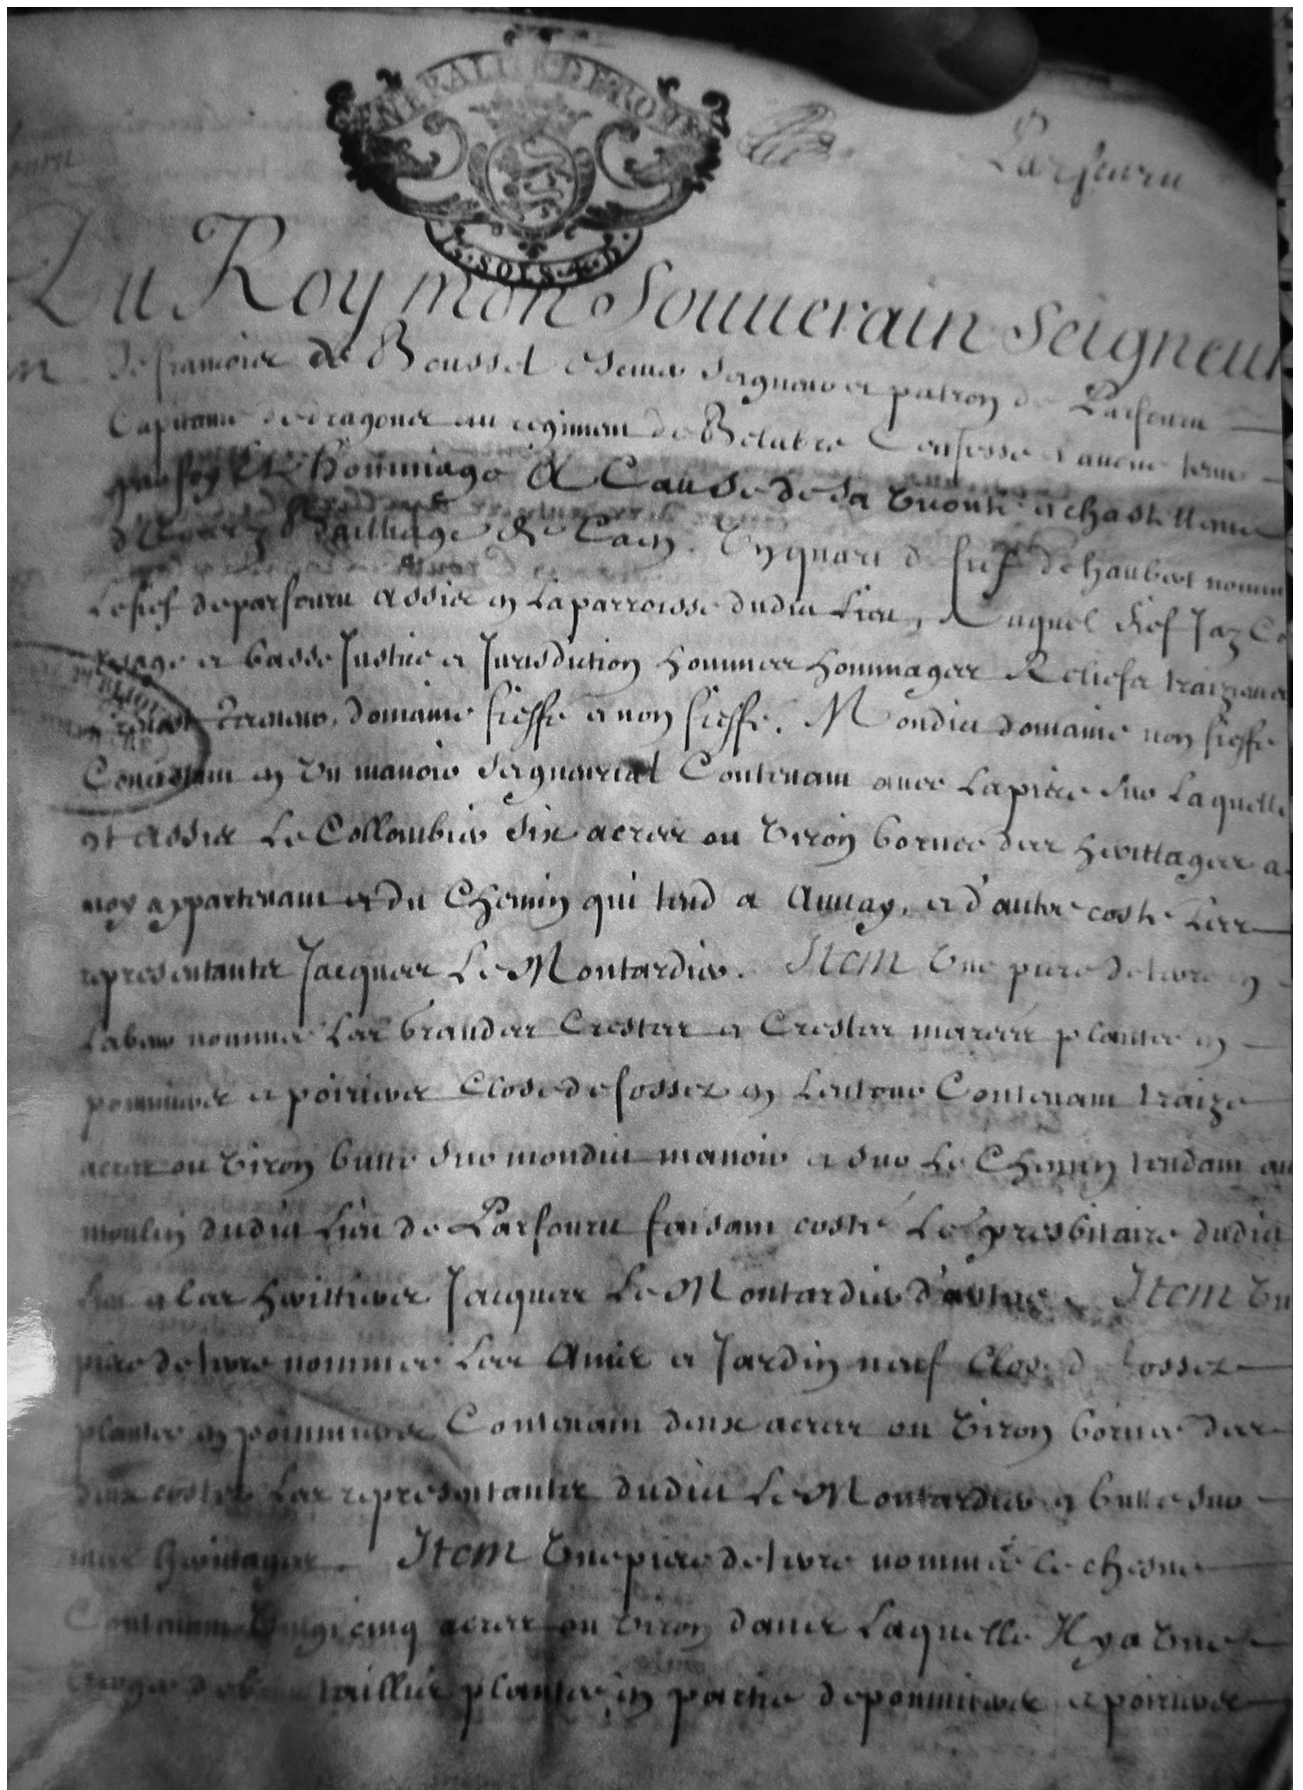 GENERALITE DE ROUEN
SOLS 4 D
Parfouru
Du Roy mon Souuerain Seigneur
Je francois de Bousset Escuier Seigneur et patron de Parfouru
Capitaine de dragons au regiment de Confesse et aueue tenir
par foy et hommage A Cause de sa viconté et chastellenie
Bailliage de Caen. Vn quart de fief de haubert nommé
Le fief de parfouru assis en La parroisse dudit Lieu, Auquel fief J'ay
et basse Justice et Jurisdiction hommes hommages Reliefs traiziemes
domaine fieffé et non fieffé. Mondit domaine non fieffé
Consistant en Vn manoir seigneurial Contenant auec La piece sur Laquelle
est assis Le Collombier six acres ou Viron bornee des heritages a
moy appartenant et du Chemin qui tend a Aunay, et d'autre costé Les
representants Jacques Le Montardier. Item Vne piece de terre en
Labeur nommée Les brandes Crestes et Crestes plantée en
pommiers et poiriers Close de fossez en Lentour Contenant traize
acres ou Viron butte sur mondit manoir et sur Le Chemin tendant au
moulin dudit Lieu de Parfouru faisant costé Le presbitaire dudit
lieu et les heritiers Jacques Le Montardier d'autre. Item Vne
piece de terre nommée Les et Jardin neuf Close de fossez
plantée en pommiers Contenant deux acres ou Viron bornée des
deux costés Les representants dudit Le Montardier et butte sur
mes heritages. Item Vne piece de terre nommée Le chesne
Contenant Vingt cinq acres ou Viron dans Laquelle Il y a Vne
taillis plantée en partie de pommiers et poiriers